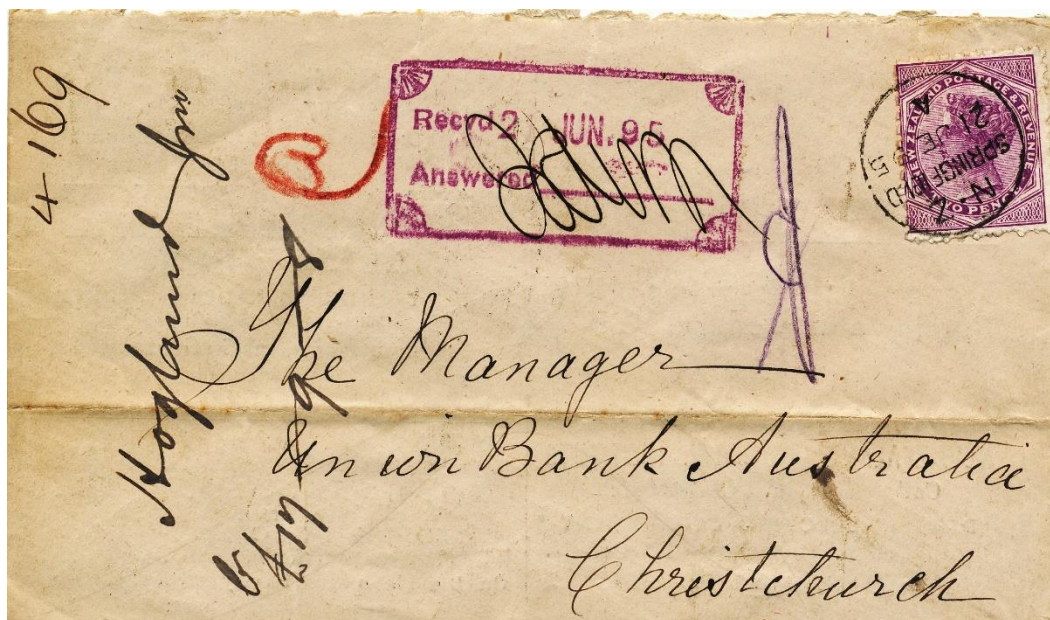 4-169
Hogland Jnr
Recvd 2 JUN. 95
Answered
NEW ZEALAND POSTAGE & REVENUE
TWO PENCE
SPRINGFIELD
N.Z
A
21 JE 95
The Manager
Union Bank Australia
Christchurch